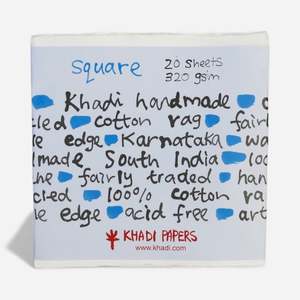 square 20 sheets
320 gsm
Khadi handmade
cotton rag fairl
edge Karnataka
made South India 100
fairly traded han
100% cotton ra
edge acid free art
KHADI PAPERS
www.khadi.com